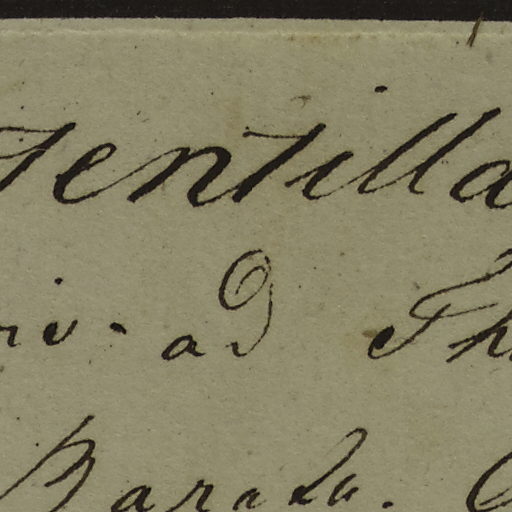 tentilla
riv. ad Th
Baraku.